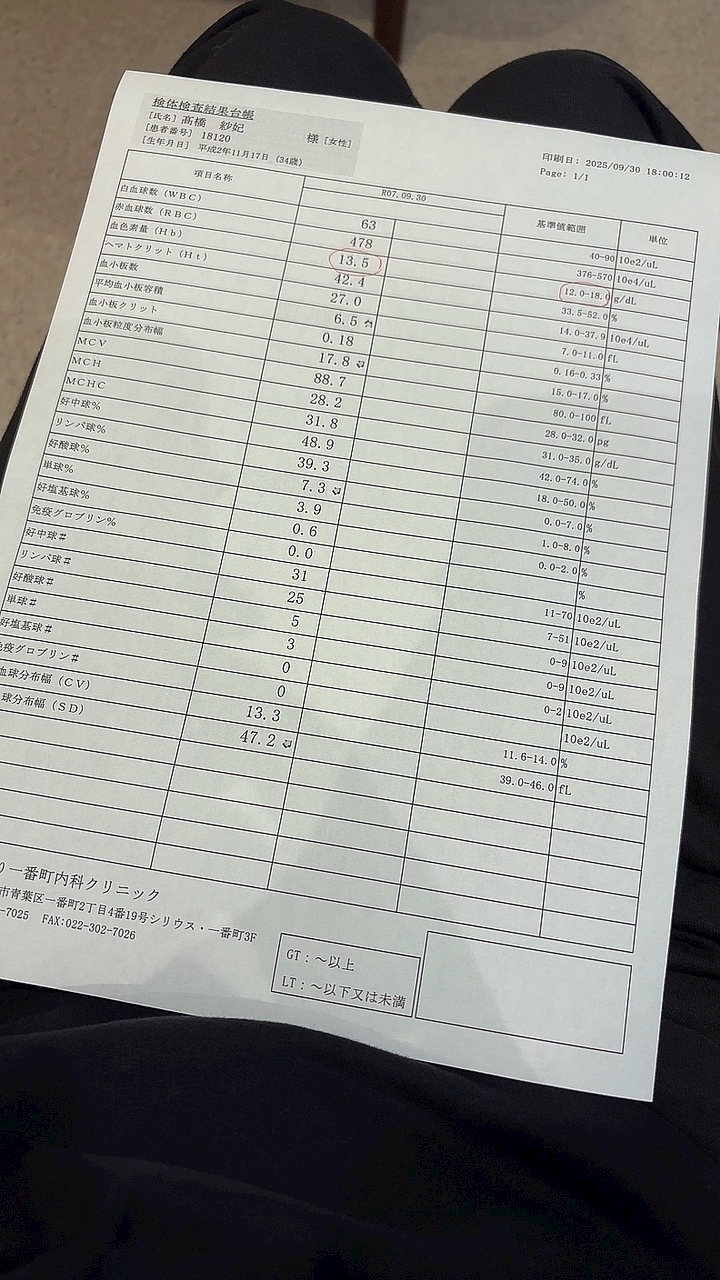 検体検査結果台帳
[氏名] 髙橋 紗妃 様 [女性]
[患者番号] 18120
[生年月日] 平成2年11月17日 (34歳)
印刷日: 2025/09/30 18:00:12
Page: 1/1
項目名称 R07.09.30 基準値範囲 単位
白血球数(WBC) 63 40-90 10e2/uL
赤血球数(RBC) 478 376-570 10e4/uL
血色素量(Hb) 13.5 12.0-18.0 g/dL
ヘマトクリット(Ht) 42.4 33.5-52.0 %
血小板数 27.0 14.0-37.9 10e4/uL
平均血小板容積 6.5 ⇧ 7.0-11.0 fL
血小板クリット 0.18 0.16-0.33 %
血小板粒度分布幅 17.8 ⇩ 15.0-17.0 %
MCV 88.7 80.0-100 fL
MCH 28.2 28.0-32.0 pg
MCHC 31.8 31.0-35.0 g/dL
好中球% 48.9 42.0-74.0 %
リンパ球% 39.3 18.0-50.0 %
好酸球% 7.3 ⇩ 0.0-7.0 %
単球% 3.9 1.0-8.0 %
好塩基球% 0.6 0.0-2.0 %
免疫グロブリン% 0.0 %
好中球# 31 11-70 10e2/uL
リンパ球# 25 7-51 10e2/uL
好酸球# 5 0-9 10e2/uL
単球# 3 0-9 10e2/uL
好塩基球# 0 0-2 10e2/uL
疫グロブリン# 0 10e2/uL
血球分布幅(CV) 13.3 11.6-14.0 %
球分布幅(SD) 47.2 ⇩ 39.0-46.0 fL
一番町内科クリニック
市青葉区一番町2丁目4番19号シリウス・一番町3F
-7025 FAX:022-302-7026
GT:～以上
LT:～以下又は未満